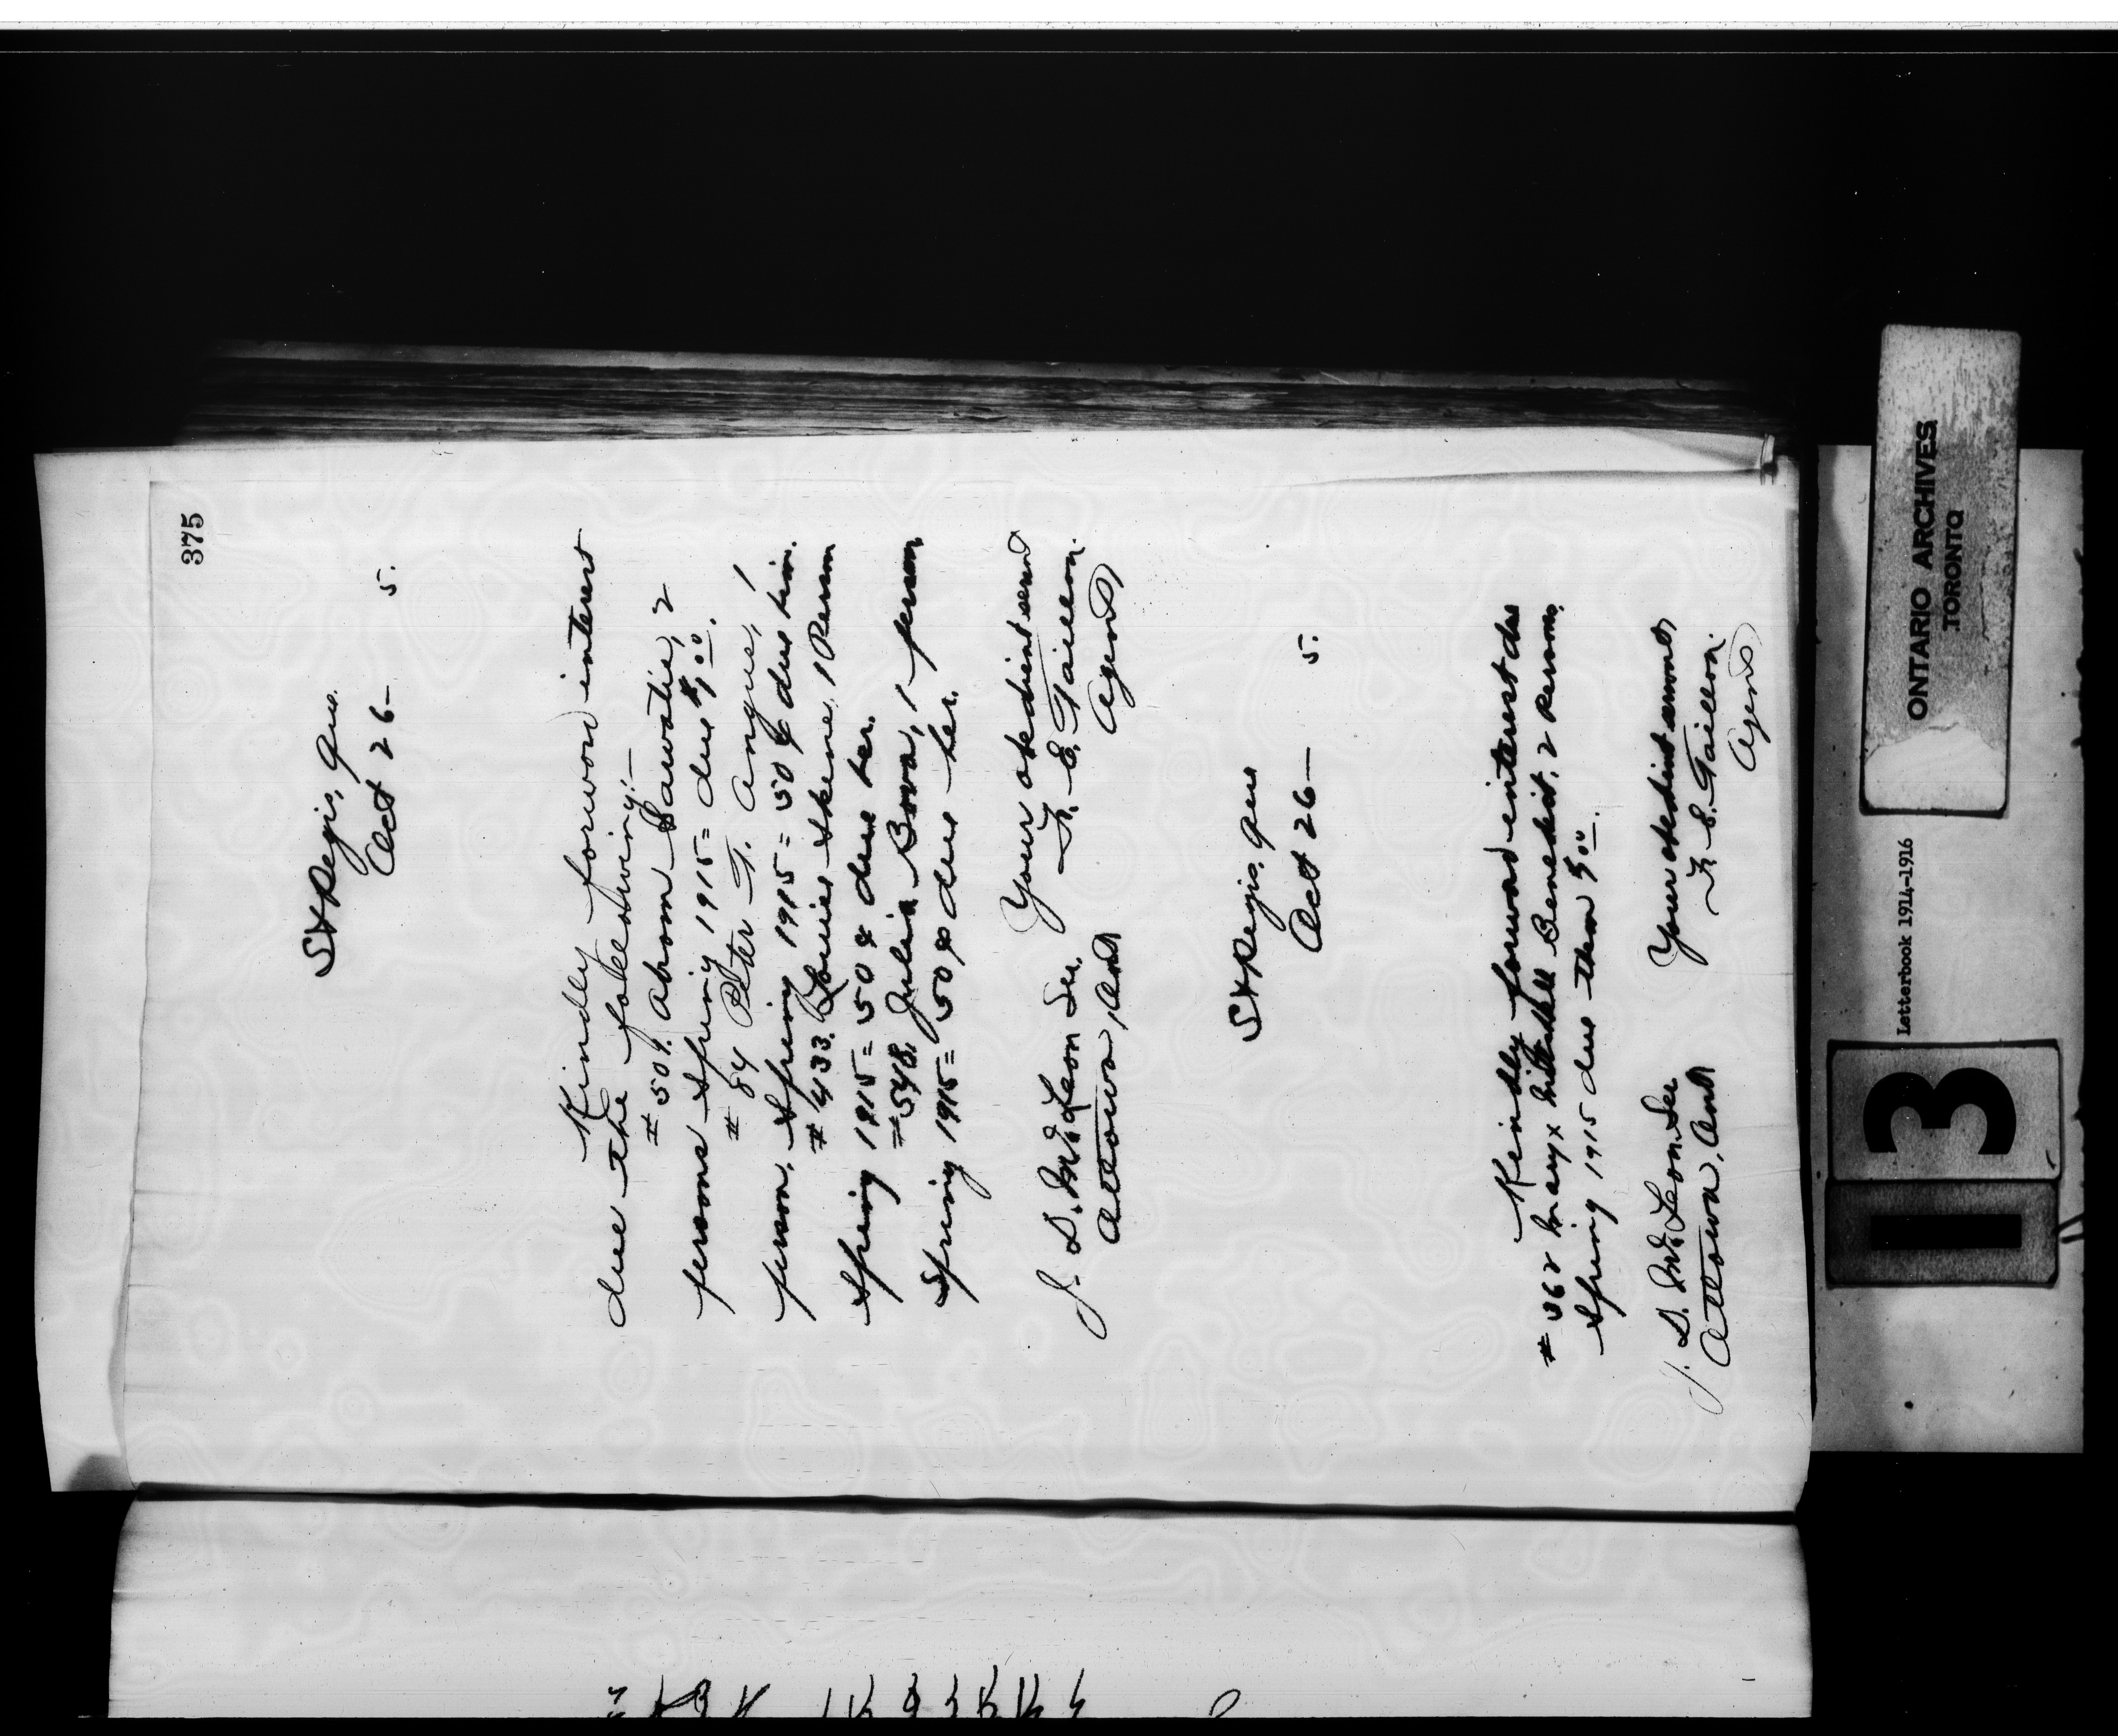 375
St Regis, Que.
Oct 26— 5.
Kindly forward interest
due the following:—
# 509. Abrom Sawatis, 2
persons Spring 1915 = due $1.00.
# 84 Peter T. Angus, 1
person, Spring 1915 = 50¢ due him.
# 433. Louise Skene, 1 Person
Spring 1915 = 50¢ due her.
# 548. Julia Bova, 1 person
Spring 1915 = 50¢ due her.
Your obedient servt
J. D. McLean Sec. F. E. Taillon.
Ottawa, Ont Agent
St Regis, Que
Oct 26— 5.
Kindly forward interest due
# 362 Mary x Benedict, 2 persons,
Spring 1915 due them
Your obedient servant,
J. D. McLean Sec F. E. Taillon.
Ottawa, Ont Agent
ONTARIO ARCHIVES
TORONTO
Letterbook 1914-1916
13